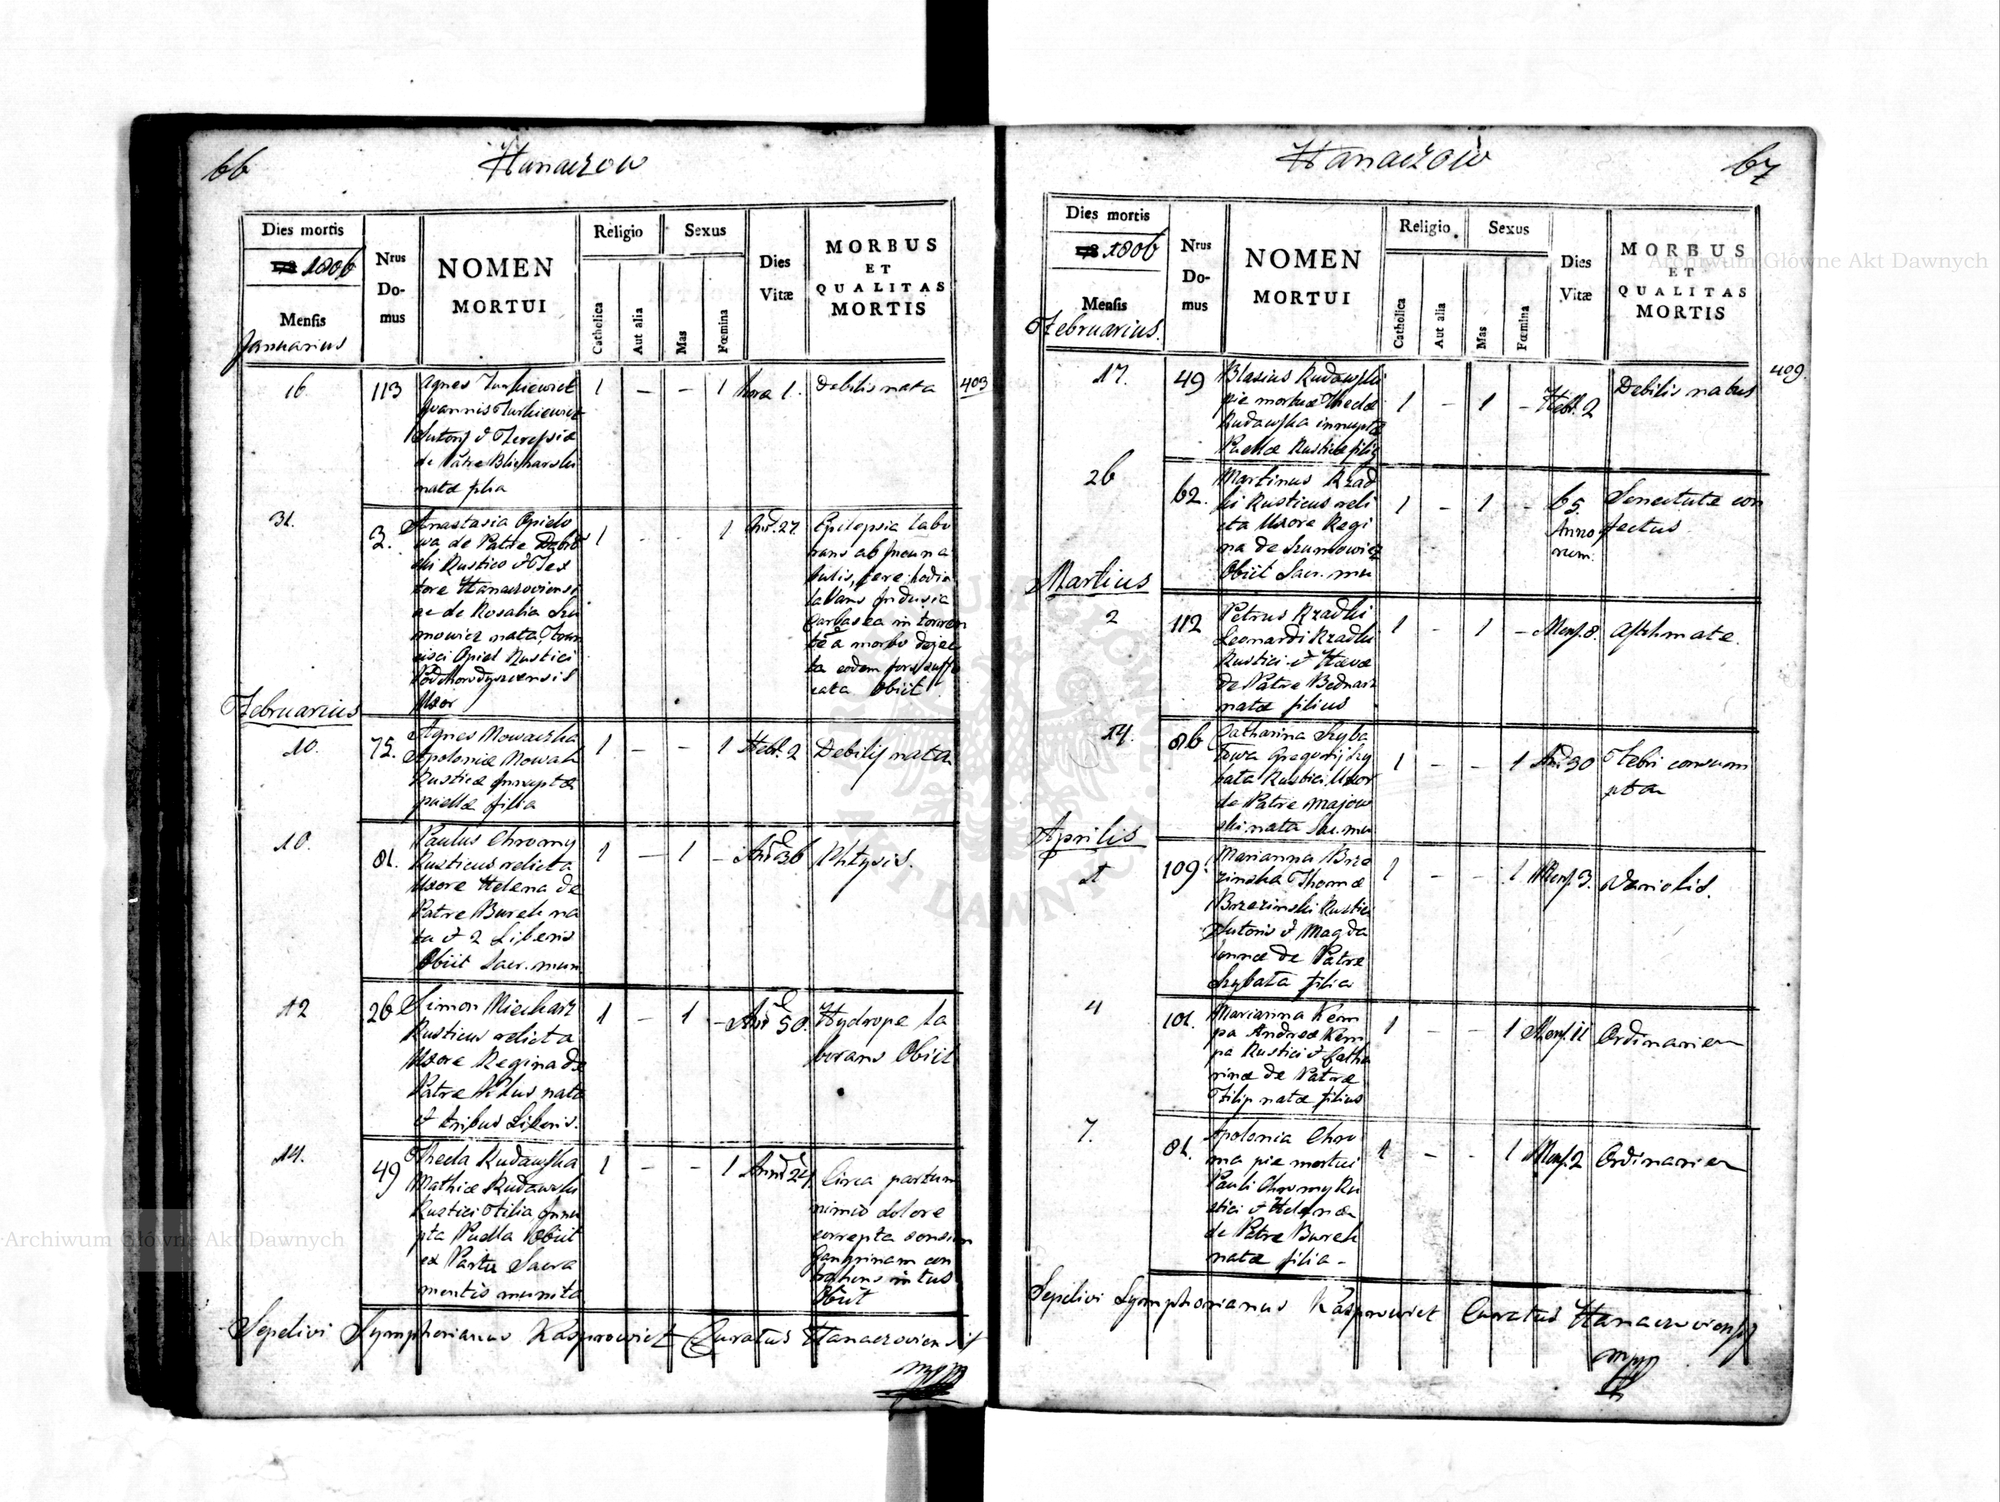 66
Hanaczow
Dies mortis
1806
Mensis
Januarius
Nrus
Do-
mus
NOMEN
MORTUI
Religio
Catholica
Aut alia
Sexus
Mas
Fœmina
Dies
Vitæ
MORBUS
ET
QUALITAS
MORTIS
403
16
113
Agnes Turkiewicz
Joannis Turkiewicz
Sutoris & Theresiæ
de Patre Blicharski
natæ filia
1
–
–
1
hora 1.
Debilis nata
31.
3.
Anastasia Opielo
wa de Patre
ski Rustico & Tex
tore Hanaczoviensi
ac de Rosalia Szu
mowicz nata, Fran
cisci Opiel Rustici
Podhorodyscensis
Uxor
1
–
–
1
27.
Epilepsia labo
rans ab juvena
tutis, fere hodie
lavans indusia
Carbasea in torren
te a morbo dejec
ta eodem fors suffo
cata Obiit
Februarius
10.
75.
Agnes Nowaczka
Apoloniæ Nowak
Rusticæ Innuptæ
puellæ filia
1
–
–
1
Hebd. 2
Debilis nata
10.
81.
Paulus Chromy
Rusticus relicta
Uxore Helena de
Patre Burek na
ta & 2 Liberis
Obiit Sacr. mun
1
–
1
–
36
Phtysis.
12
26
Simon Miechar
Rusticus relicta
Uxore Regina de
Patre nata
et tribus Liberis.
1
–
1
–
50.
Hydrope la
borans Obiit
14.
49
Thecla Rudawska
Mathiæ Rudawski
Rustici Filia Innu
pta Puella Obiit
ex Partu Sacra
mentis munita
1
–
–
1
24.
Circa partum
nimio dolore
correpta
Gangrinam con
trahens intus
Obiit
Sepelivi Symphorianus Kasprowicz Curatus Hanaczoviensis
mpp
67
Hanaczów
Dies mortis
1806
Mensis
Februarius.
Nrus
Do-
mus
NOMEN
MORTUI
Religio
Catholica
Aut alia
Sexus
Mas
Fœmina
Dies
Vitæ
MORBUS
ET
QUALITAS
MORTIS
409.
17.
49
Blasius Rudawski
pie mortuæ Theclæ
Rudawska innuptæ
Puellæ Rusticæ filius
1
–
1
–
Hebd. 2
Debilis natus
26
62.
Martinus Rzad
ki Rusticus reli
cta Uxore Regi
na de Szumowicz
Obiit Sacr. mu
1
–
1
–
65.
Anno
rum.
Senectute con
fectus.
Martius
2
112
Petrus Rzadki
Leonardi Rzadki
Rustici & Hævæ
de Patre Bednarz
natæ filius
1
–
1
–
Mens. 8.
Asthmate.
14.
86
Catharina Szyba
towa Gregorii Szy
bata Rustici Uxor
de Patre Majow
ski nata Sac. mu
1
–
–
1
30
Febri consum
pta
Aprilis
1
109.
Marianna Brze
zinska Thomæ
Brzezinski Rustici
Sutoris & Magda
lennæ de Patre
Szybata filia
1
–
–
1
Mens. 3.
Variolis.
4
101.
Marianna Kem
pa Andreæ Kem
pa Rustici & Catha
rinæ de Patre
Filip natæ filius
1
–
–
1
Mens. 11
Ordinaria
7.
81.
Apolonia Chro
ma pie mortui
Pauli Chromy Ru
stici & Helenæ
de Patre Burek
natæ filia –
1
–
–
1
Mens. 2
Ordinaria
Sepelivi Symphorianus Kasprowicz Curatus Hanaczoviensis
mpp
Archiwum Główne Akt Dawnych
Archiwum Główne Akt Dawnych